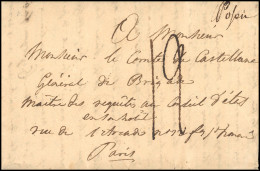 A Monsieur
Monsieur le Comte de Castellane
Général de Brigade
Maître des requêtes au Conseil d'état
en son hôtel
rue de l'arcade
Paris